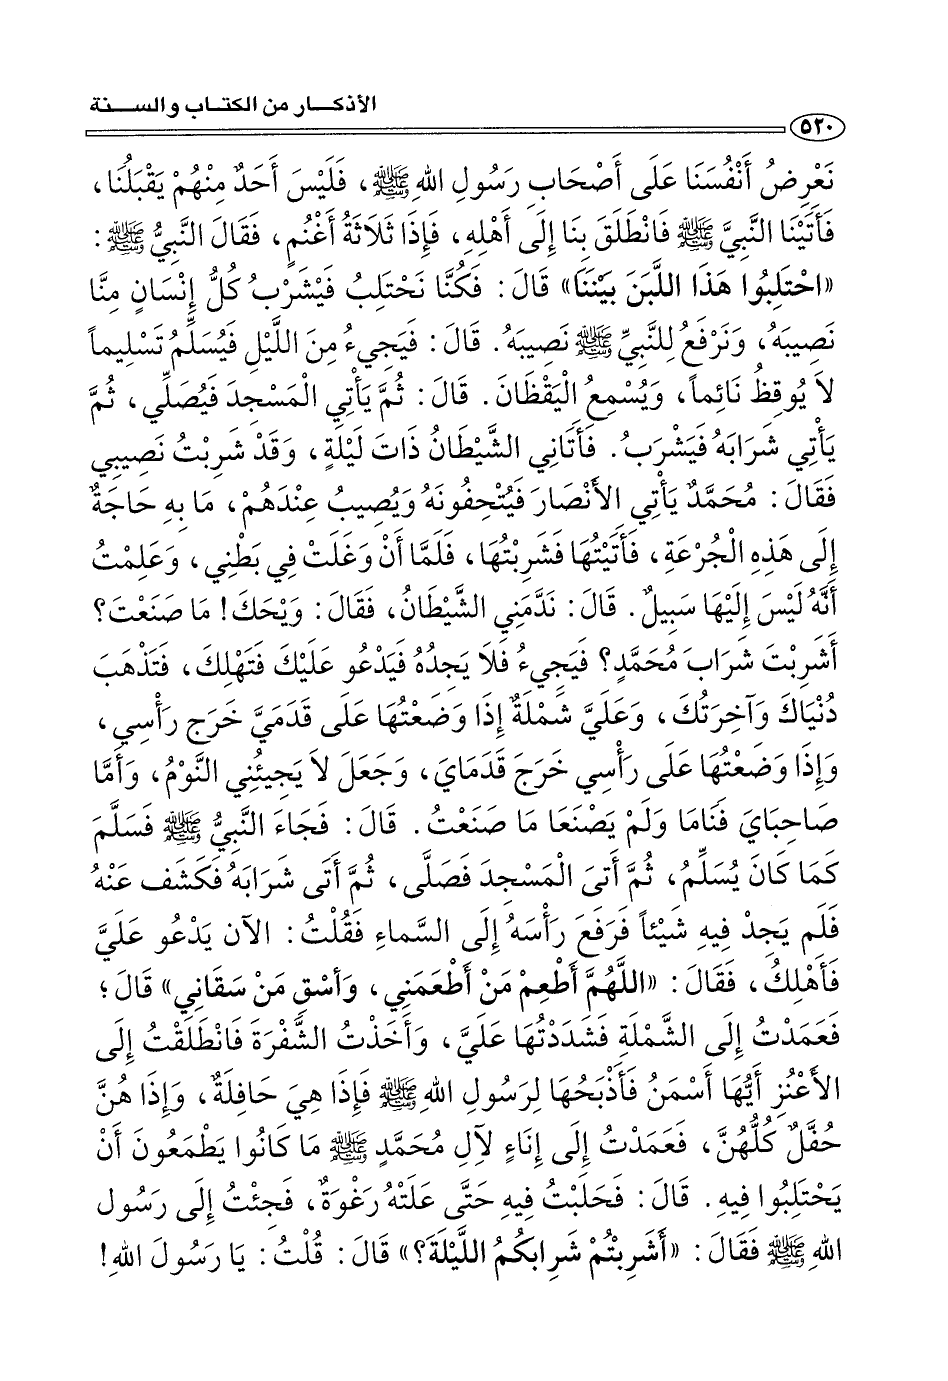 الأذكـــار من الكتـاب والســـنة
٥٢٠
نَعْرِضُ أَنْفُسَنَا عَلَى أَصْحَابِ رَسُولِ اللهِ ﷺ، فَلَيْسَ أَحَدٌ مِنْهُمْ يَقْبَلُنَا،
فَأَتَيْنَا النَّبِيَّ ﷺ فَانْطَلَقَ بِنَا إِلَى أَهْلِهِ، فَإِذَا ثَلَاثَةُ أَعْنُمٍ، فَقَالَ النَّبِيُّ ﷺ:
«احْتَلِبُوا هَذَا اللَّبَنَ بَيْنَنَا» قَالَ: فَكُنَّا نَحْتَلِبُ فَيَشْرَبُ كُلُّ إِنْسَانٍ مِنَّا
نَصِيبَهُ، وَنَرْفَعُ لِلنَّبِيِّ ﷺ نَصِيبَهُ. قَالَ: فَيَجِيءُ مِنَ اللَّيْلِ فَيُسَلِّمُ تَسْلِيماً
لاَ يُوقِظُ نَائِماً، وَيُسْمِعُ الْيَقْظَانَ. قَالَ: ثُمَّ يَأْتِي الْمَسْجِدَ فَيُصَلِّي، ثُمَّ
يَأْتِي شَرَابَهُ فَيَشْرَبُ. فَأَتَانِي الشَّيْطَانُ ذَاتَ لَيْلَةٍ، وَقَدْ شَرِبْتُ نَصِيبِي
فَقَالَ: مُحَمَّدٌ يَأْتِي الأَنْصَارَ فَيُتْحِفُونَهُ وَيُصِيبُ عِنْدَهُمْ، مَا بِهِ حَاجَةٌ
إِلَى هَذِهِ الْجُرْعَةِ، فَأَتَيْتُهَا فَشَرِبْتُهَا، فَلَمَّا أَنْ وَغَلَتْ فِي بَطْنِي، وَعَلِمْتُ
أَنَّهُ لَيْسَ إِلَيْهَا سَبِيلٌ. قَالَ: نَدَّمَنِي الشَّيْطَانُ، فَقَالَ: وَيْحَكَ! مَا صَنَعْتَ؟
أَشَرِبْتَ شَرَابَ مُحَمَّدٍ؟ فَيَجِيءُ فَلاَ يَجِدُهُ فَيَدْعُو عَلَيْكَ فَتَهْلِكَ، فَتَذْهَبَ
دُنْيَاكَ وَآخِرَتُكَ، وَعَلَيَّ شَمْلَةٌ إِذَا وَضَعْتُهَا عَلَى قَدَمَيَّ خَرَجَ رَأْسِي،
وَإِذَا وَضَعْتُهَا عَلَى رَأْسِي خَرَجَ قَدَمَايَ، وَجَعَلَ لاَ يَجِيئُنِي النَّوْمُ، وَأَمَّا
صَاحِبَايَ فَنَامَا وَلَمْ يَصْنَعَا مَا صَنَعْتُ. قَالَ: فَجَاءَ النَّبِيُّ ﷺ فَسَلَّمَ
كَمَا كَانَ يُسَلِّمُ، ثُمَّ أَتىَ الْمَسْجِدَ فَصَلَّى، ثُمَّ أَتَى شَرَابَهُ فَكَشَفَ عَنْهُ
فَلَم يَجِدْ فِيهِ شَيْئاً فَرَفَعَ رَأْسَهُ إِلَى السَّماءِ فَقُلْتُ: الآن يَدْعُو عَلَيَّ
فَأَهْلِكُ، فَقَالَ: «اللَّهُمَّ أَطْعِمْ مَنْ أَطْعَمَنِي، وَأسْقِ مَنْ سَقَانِي» قَالَ؛
فَعَمَدْتُ إِلَى الشَّمْلَةِ فَشَدَدْتُهَا عَلَيَّ، وَأَخَذْتُ الشَّفْرَةَ فَانْطَلَقْتُ إِلَى
الأَعْنُزِ أَيُّهَا أَسْمَنُ فَأَذْبَحُهَا لِرَسُولِ اللهِ ﷺ فَإِذَا هِيَ حَافِلَةٌ، وَإِذَا هُنَّ
حُفَّلٌ كُلُّهُنَّ، فَعَمَدْتُ إِلَى إِنَاءٍ لآِلِ مُحَمَّدٍ ﷺ مَا كَانُوا يَطْمَعُونَ أَنْ
يَحْتَلِبُوا فِيهِ. قَالَ: فَحَلَبْتُ فِيهِ حَتَّى عَلَتْهُ رَغْوَةٌ، فَجِئْتُ إِلَى رَسُول
اللهِ ﷺ فَقَالَ: «أَشَرِبْتُمْ شَرابَكُمُ اللَّيْلَةَ؟» قَالَ: قُلْتُ: يَا رَسُولَ اللهِ!